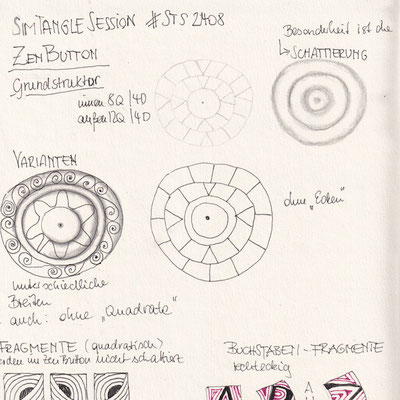 SIMTANGLE SESSION #STS 2408
ZENBUTTON
Grundstruktur
innen 8Q /40
außen 12Q /40
Besonderheit ist die
↳ SCHATTIERUNG
VARIANTEN
ohne „Ecken“
unterschiedliche
Breiten
auch: ohne „Quadrate“
FRAGMENTE (quadratisch)
werden im ZenButton nicht schattiert
BUCHSTABEN-FRAGMENTE
rechteckig
A